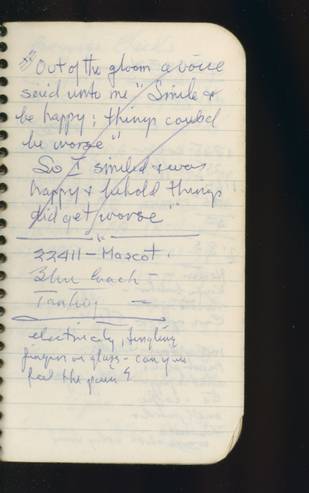 "Out of the gloom a voice
said unto me "Smile &
be happy; things could
be worse"
So I smiled & was
happy & behold things
did get worse"
22411 - Mascot.
Blue
electricity, tingling
fingers on glass - can you
feel the pain?